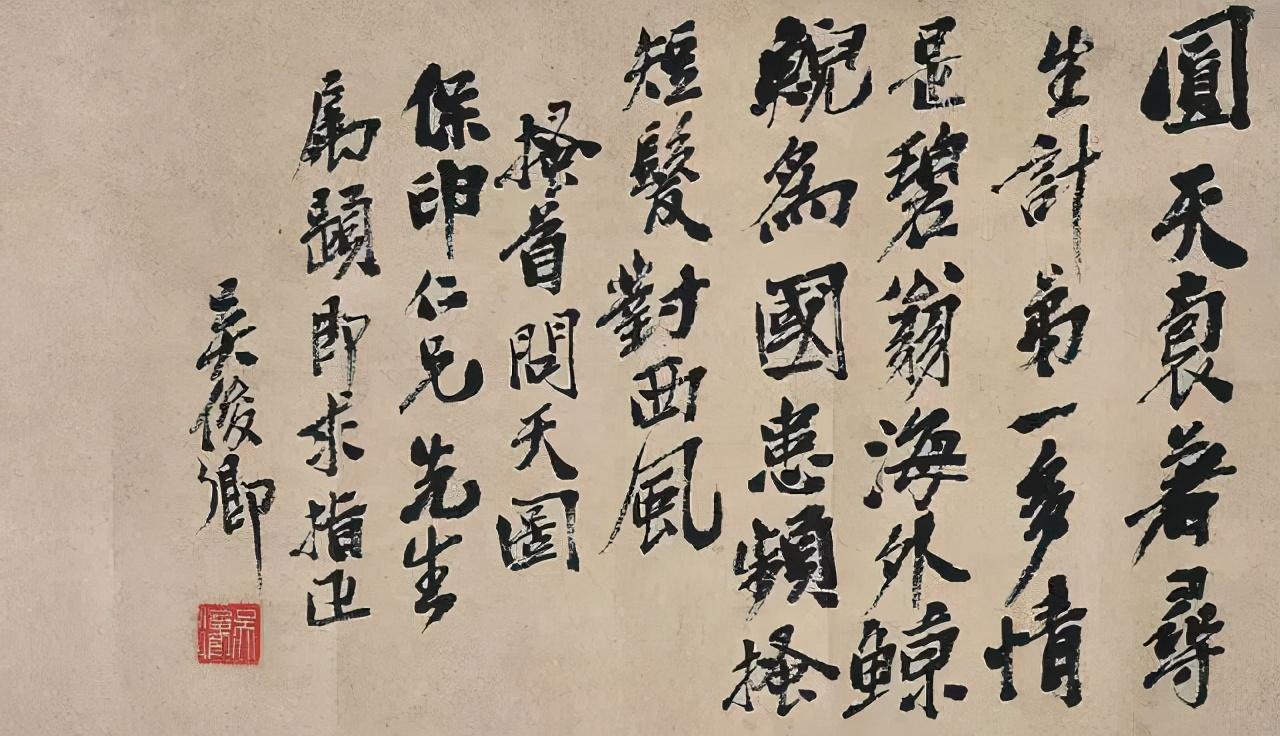 圓天裏著尋
生計弟一多情
是碧翁海外鯨
鯢爲國患頻搔
短髮對西風
搔首問天圖
保印仁兄先生
屬題即求指正
吳俊卿